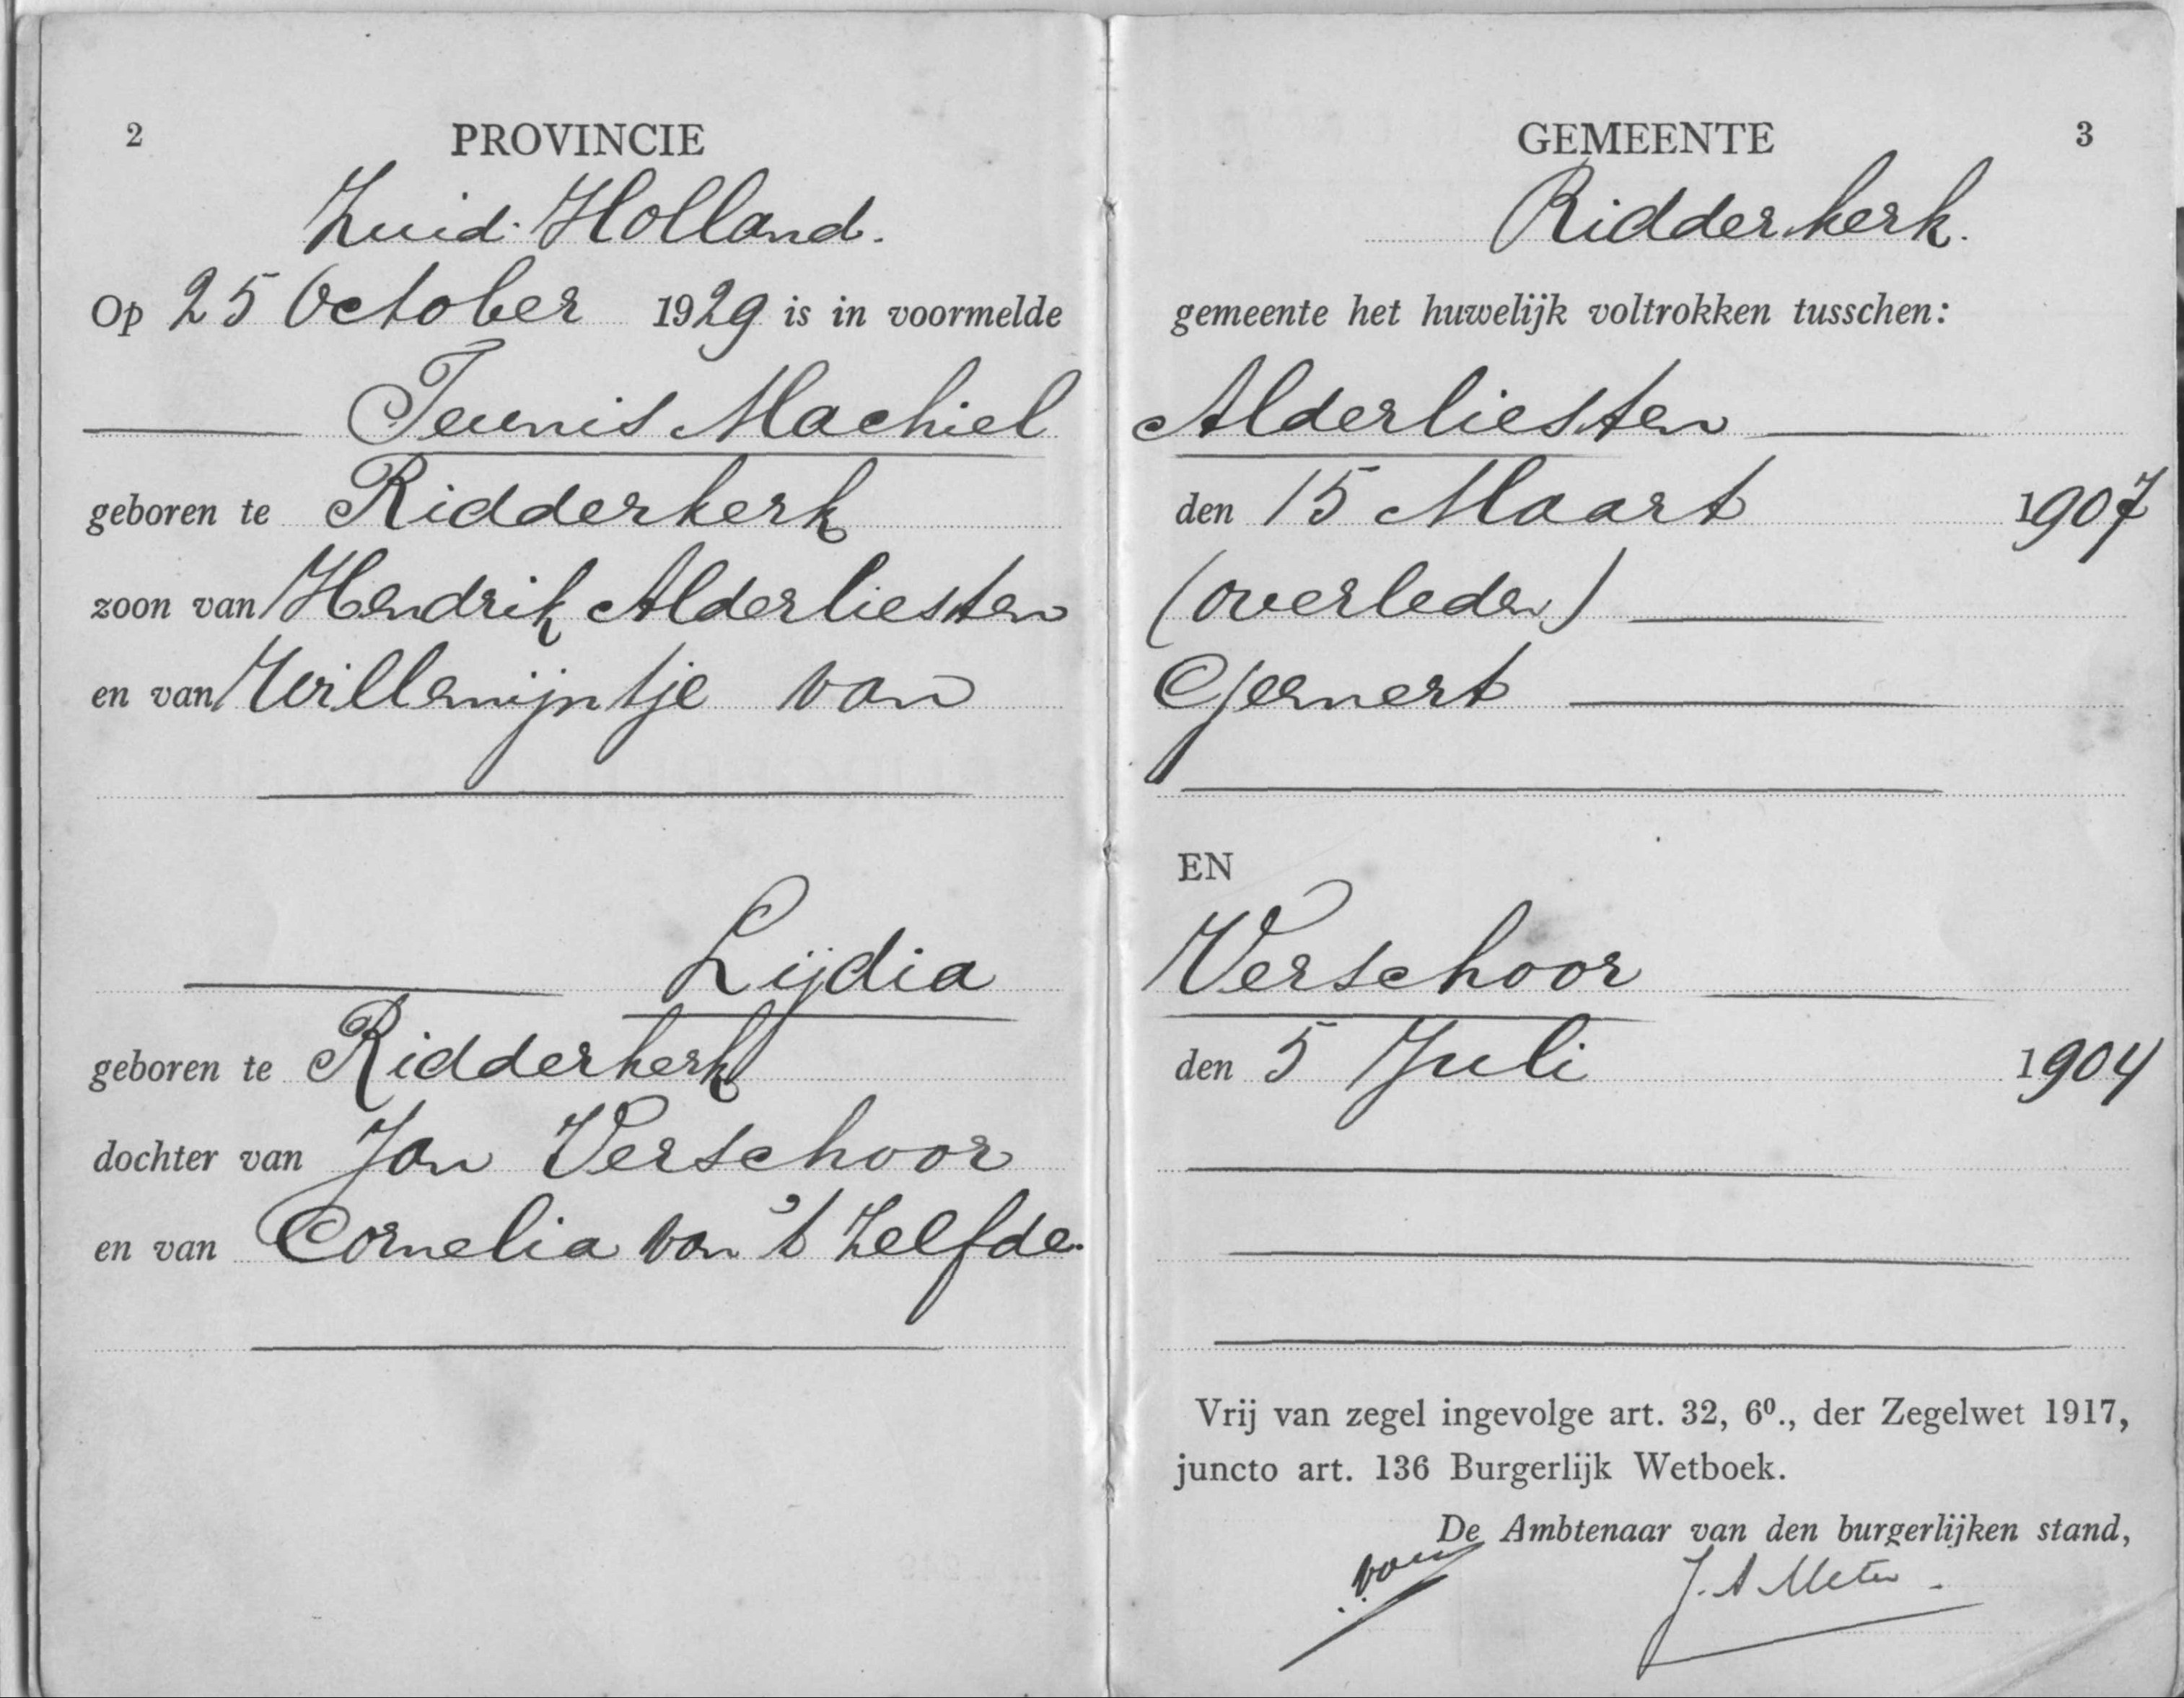 2 PROVINCIE
Zuid-Holland.
Op 25 October 1929 is in voormelde
Teunis Machiel
geboren te Ridderkerk
zoon van Hendrik Alderliesten
en van Willemijntje van
Lijdia
geboren te Ridderkerk
dochter van Jan Verschoor
en van Cornelia van 't Zelfde.
GEMEENTE 3
Ridderkerk.
gemeente het huwelijk voltrokken tusschen:
Alderliesten
den 15 Maart 1907
(overleden)
Gemert
EN
Verschoor
den 5 Juli 1904
Vrij van zegel ingevolge art. 32, 6⁰., der Zegelwet 1917,
juncto art. 136 Burgerlijk Wetboek.
De Ambtenaar van den burgerlijken stand,
J. A